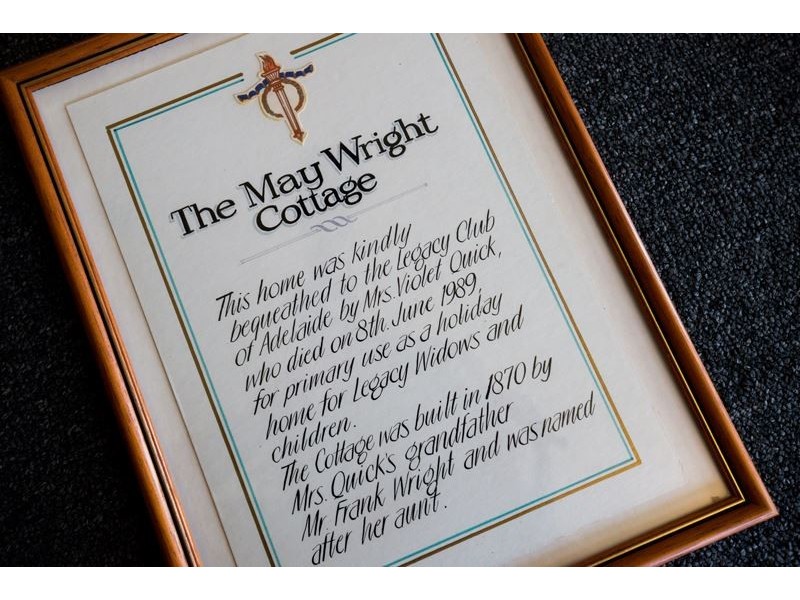 The May Wright
Cottage
This home was kindly
bequeathed to the Legacy Club
of Adelaide by Mrs. Violet Quick,
who died on 8th. June 1989,
for primary use as a holiday
home for Legacy Widows and
children.
The Cottage was built in 1870 by
Mrs. Quick's grandfather
Mr. Frank Wright and was named
after her aunt.